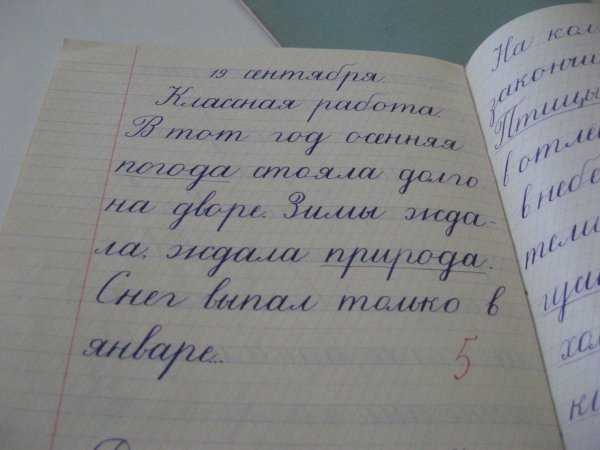 19 сентября.
Классная работа.
В тот год осенняя
погода стояла долго
на дворе. Зимы жда-
ла, ждала природа.
Снег выпал только в
январе...
5
На кол
закончи
Птицы
в отле
в небе
тели
щает
хол
кл